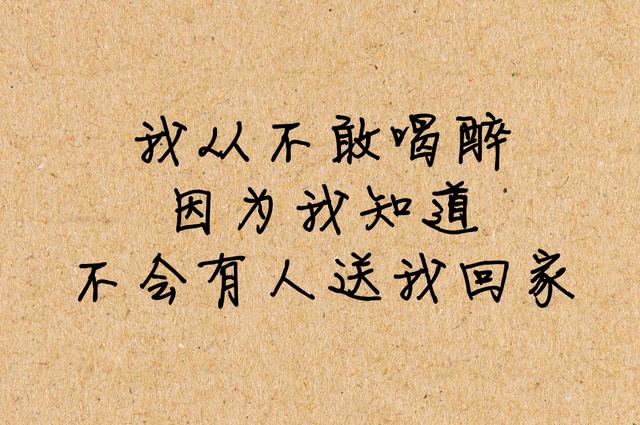 我从不敢喝醉
因为我知道
不会有人送我回家